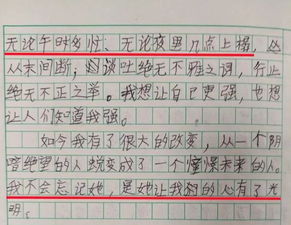 无论午时多忙、无论夜里几点上榻，从
从未间断；对谈吐绝无不雅之词，行止
绝无不正之举。我想让自己更强，也想
让人们知道我强。
如今我有了很大的改变，从一个阴
暗绝望的人蜕变成了一个憧憬未来的人。
我不会忘记她，是她让我的心有了光
明。